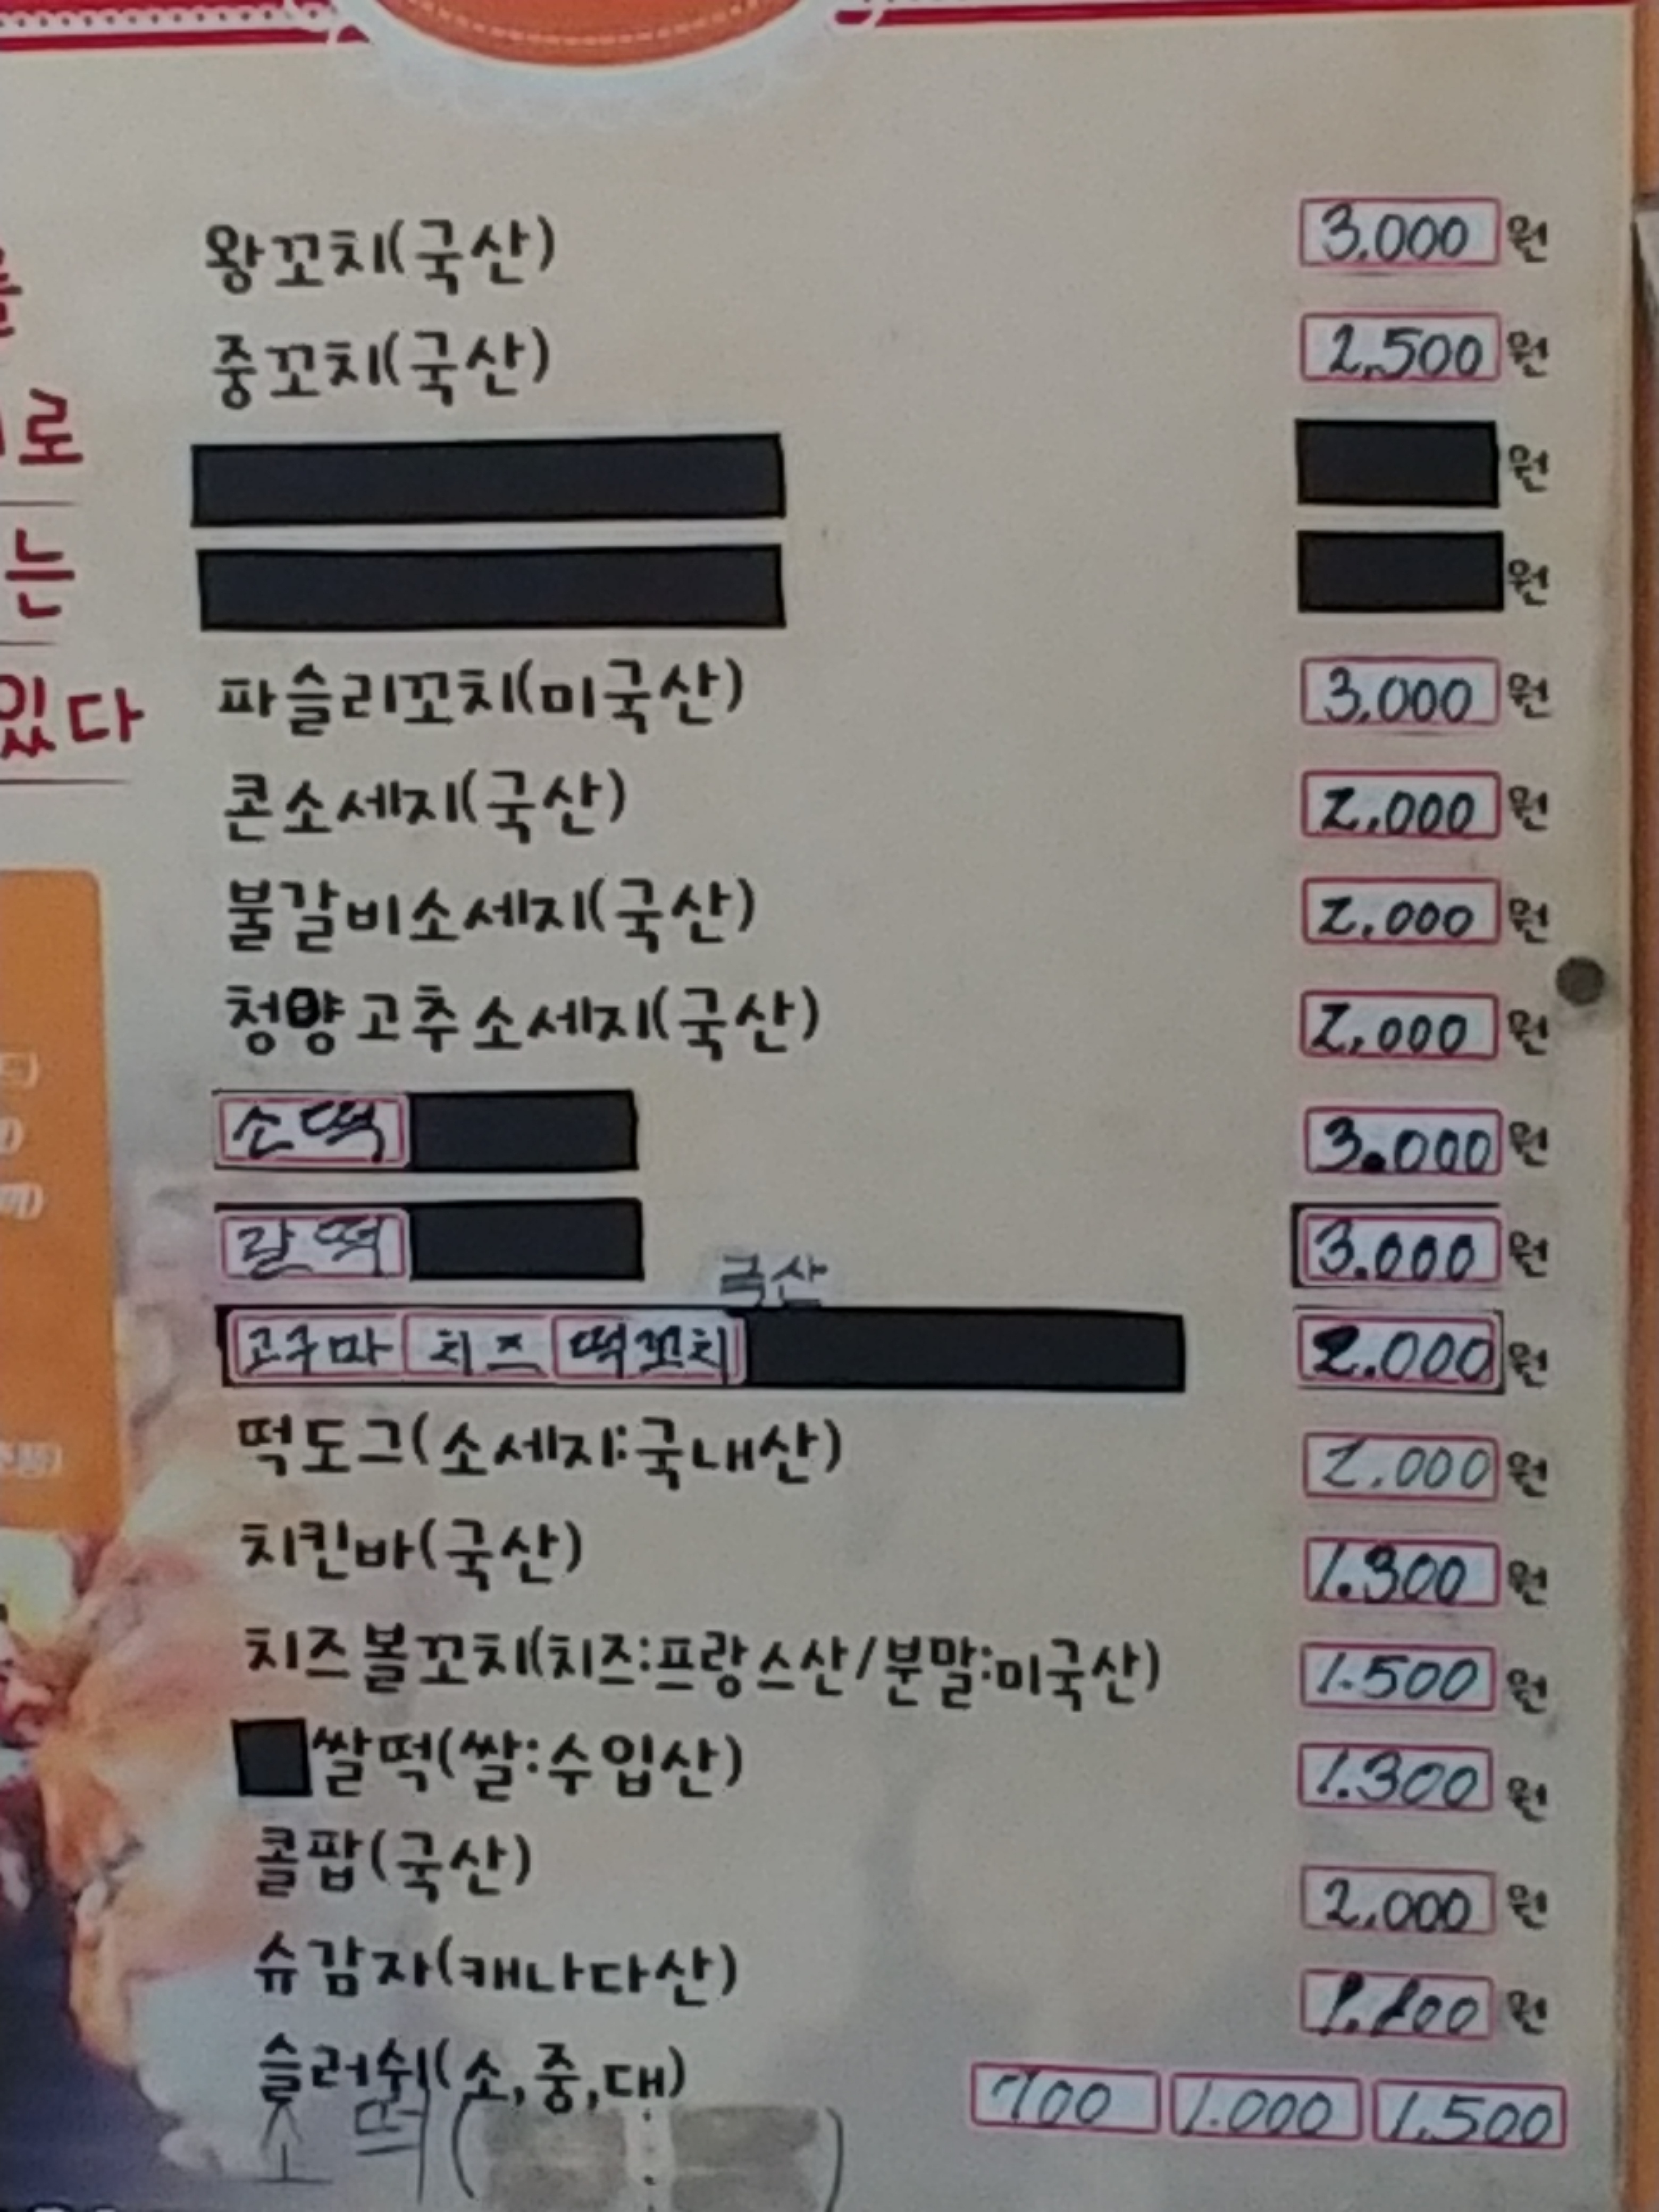 왕꼬치(국산) 3.000 원
중꼬치(국산) 2.500 원
원
원
파슬리꼬치(미국산) 3.000 원
콘소세지(국산) 2.000 원
불갈비소세지(국산) 2.000 원
청양고추소세지(국산) 2.000 원
소떡 3.000 원
갈떡 3.000 원
국산
고구마 치즈 떡꼬치 2.000 원
떡도그(소세지:국내산) 2.000 원
치킨바(국산) 1.300 원
치즈볼꼬치(치즈:프랑스산/분말:미국산) 1.500 원
쌀떡(쌀:수입산) 1.300 원
콜팝(국산) 2.000 원
슈감자(캐나다산) 원
슬러쉬(소,중,대) 700 1.000 1.500
소떡( : )
를
로
는
있다